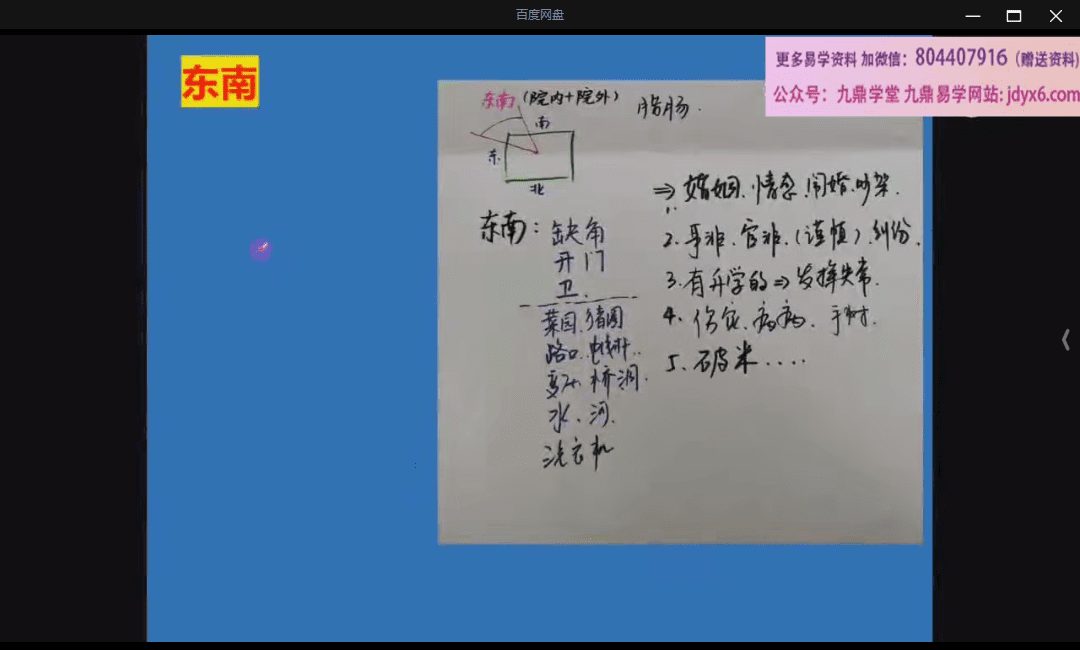 百度网盘
东南
更多易学资料 加微信：804407916（赠送资料）
公众号：九鼎学堂 九鼎易学网站：jdyx6.com
东南（院内+院外）
南
东
北
东南：缺角
开门
卫.
菜园.猪圈
路口.
桥洞.
水.河.
洗衣机
⇒婚姻.情.闹婚.吵架.
2.官非.（谨慎）.纠纷.
3.有升学的⇒发挥失常.
4.伤
5.破米....